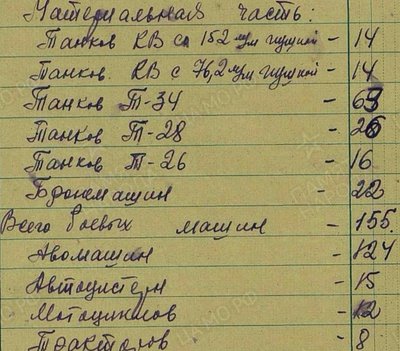 Материальная часть:
Танков КВ со 152 м/м пушкой - 14
Танков КВ с 76,2 м/м пушкой - 14
Танков Т-34 - 63
Танков Т-28 - 26
Танков Т-26 - 16
Бронемашин - 22
Всего боевых машин - 155.
Авомашин - 124
Автоцистерн - 15
Мотоциклов - 12
Тракторов - 8